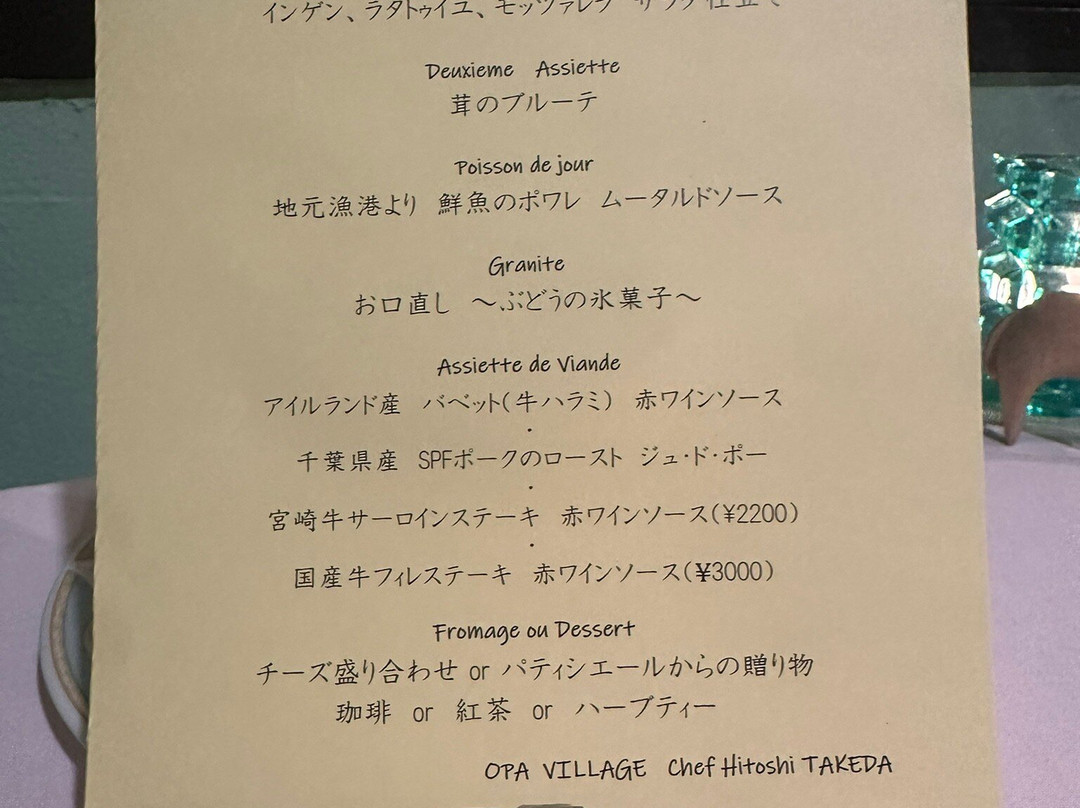 インゲン、ラタトゥイユ、モッツァレラ サラダ仕立て
Deuxieme Assiette
茸のブルーテ
Poisson de jour
地元漁港より 鮮魚のポワレ ムータルドソース
Granite
お口直し ～ぶどうの氷菓子～
Assiette de Viande
アイルランド産 バベット(牛ハラミ) 赤ワインソース
・
千葉県産 SPFポークのロースト ジュ・ド・ポー
・
宮崎牛サーロインステーキ 赤ワインソース(¥2200)
・
国産牛フィレステーキ 赤ワインソース(¥3000)
Fromage ou Dessert
チーズ盛り合わせ or パティシエールからの贈り物
珈琲 or 紅茶 or ハーブティー
OPA VILLAGE Chef Hitoshi TAKEDA